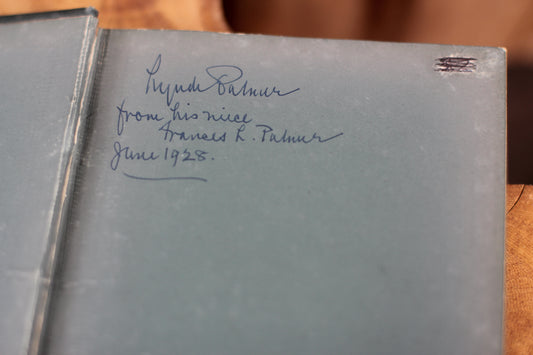 Lynde Palmer
from his niece
Frances L. Palmer
June 1928.